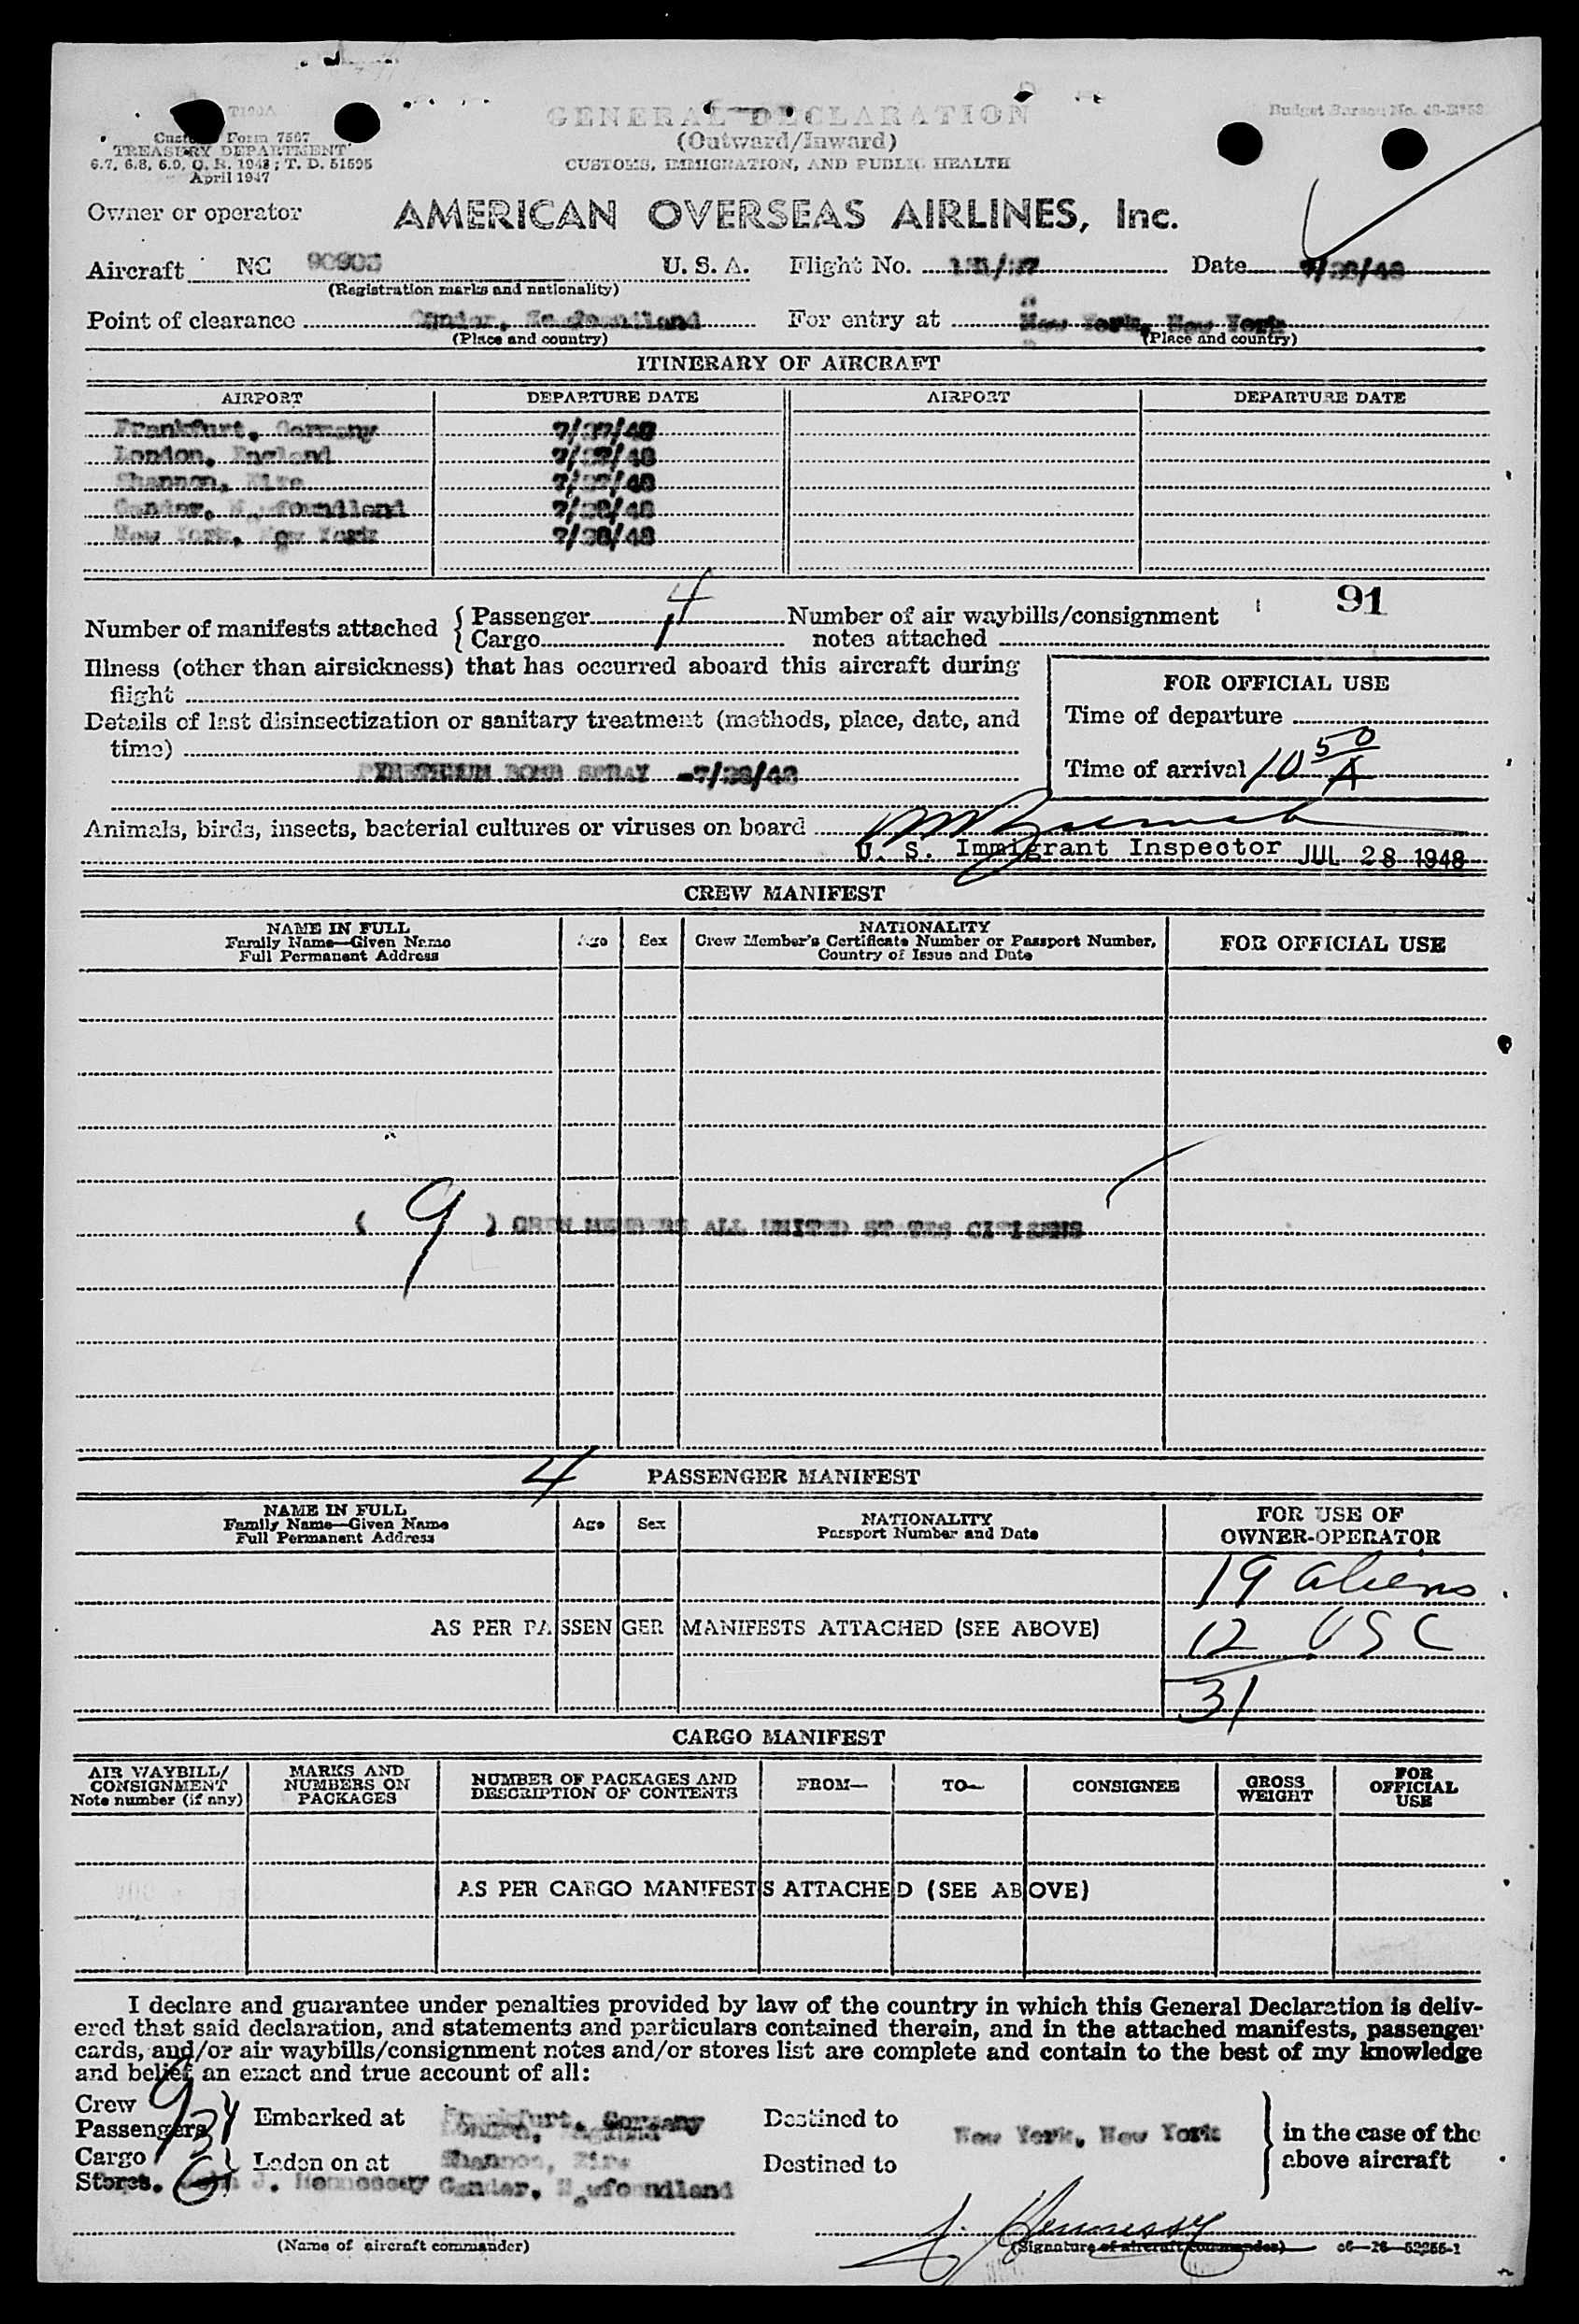 T100A
Customs Form 7507
TREASURY DEPARTMENT
6.7, 6.8, 6.9, C. R. 1943; T. D. 51595
April 1947
GENERAL DECLARATION
(Outward/Inward)
CUSTOMS, IMMIGRATION, AND PUBLIC HEALTH
Budget Bureau No.
Owner or operator AMERICAN OVERSEAS AIRLINES, Inc.
Aircraft NC U. S. A. Flight No. Date 7/28/48
(Registration marks and nationality)
Point of clearance Gander, Newfoundland For entry at New York, New York
(Place and country) (Place and country)
ITINERARY OF AIRCRAFT
AIRPORT DEPARTURE DATE AIRPORT DEPARTURE DATE
Frankfurt, Germany 7/27/48
London, England 7/27/48
Shannon, Eire 7/27/48
Gander, Newfoundland 7/28/48
New York, New York 7/28/48
91
Number of manifests attached { Passenger 4 Number of air waybills/consignment
Cargo 1 notes attached
Illness (other than airsickness) that has occurred aboard this aircraft during
flight
Details of last disinsectization or sanitary treatment (methods, place, date, and
time)
PYRETHRUM BOMB SPRAY -7/28/48
FOR OFFICIAL USE
Time of departure
Time of arrival 10 50 A
Animals, birds, insects, bacterial cultures or viruses on board
U. S. Immigrant Inspector JUL 28 1948
CREW MANIFEST
NAME IN FULL
Family Name—Given Name
Full Permanent Address
Age Sex
NATIONALITY
Crew Member's Certificate Number or Passport Number,
Country of Issue and Date
FOR OFFICIAL USE
( 9 ) CREW MEMBERS ALL UNITED STATES CITIZENS
4 PASSENGER MANIFEST
NAME IN FULL
Family Name—Given Name
Full Permanent Address
Age Sex
NATIONALITY
Passport Number and Date
FOR USE OF
OWNER-OPERATOR
19 aliens
AS PER PASSENGER MANIFESTS ATTACHED (SEE ABOVE) 12 USC
31
CARGO MANIFEST
AIR WAYBILL/
CONSIGNMENT
Note number (if any)
MARKS AND
NUMBERS ON
PACKAGES
NUMBER OF PACKAGES AND
DESCRIPTION OF CONTENTS
FROM— TO— CONSIGNEE
GROSS
WEIGHT
FOR
OFFICIAL
USE
AS PER CARGO MANIFESTS ATTACHED (SEE ABOVE)
I declare and guarantee under penalties provided by law of the country in which this General Declaration is deliv-
ered that said declaration, and statements and particulars contained therein, and in the attached manifests, passenger
cards, and/or air waybills/consignment notes and/or stores list are complete and contain to the best of my knowledge
and belief an exact and true account of all:
Crew 9
Passengers 31 } Embarked at Frankfurt, Germany Destined to
London, England New York, New York } in the case of the
Cargo } Laden on at Shannon, Eire Destined to above aircraft
Stores. John J. Hennessy Gander, Newfoundland
J. Hennessy
(Name of aircraft commander) (Signature of aircraft commander) c6—16—52255-1